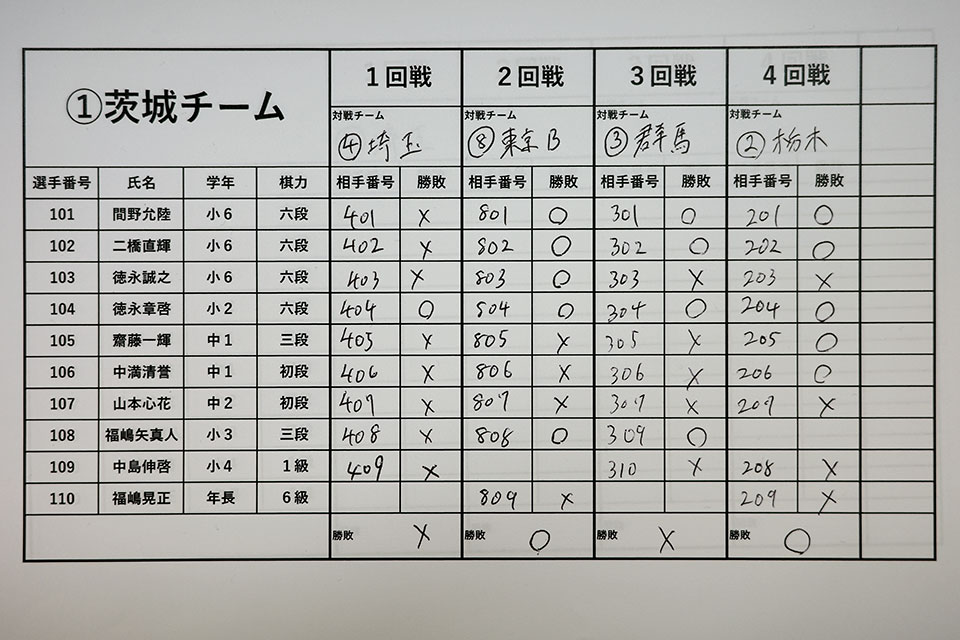 ①茨城チーム 1回戦 2回戦 3回戦 4回戦
対戦チーム 対戦チーム 対戦チーム 対戦チーム
④埼玉 ⑧東京B ③群馬 ②栃木
選手番号 氏名 学年 棋力 相手番号 勝敗 相手番号 勝敗 相手番号 勝敗 相手番号 勝敗
101 間野允陸 小6 六段 401 × 801 ○ 301 ○ 201 ○
102 二橋直輝 小6 六段 402 × 802 ○ 302 ○ 202 ○
103 徳永誠之 小6 六段 403 × 803 ○ 303 × 203 ×
104 徳永章啓 小2 六段 404 ○ 804 ○ 304 ○ 204 ○
105 齋藤一輝 中1 三段 405 × 805 × 305 × 205 ○
106 中満清誉 中1 初段 406 × 806 × 306 × 206 ○
107 山本心花 中2 初段 407 × 807 × 307 × 207 ×
108 福嶋矢真人 小3 三段 408 × 808 ○ 309 ○
109 中島伸啓 小4 1級 409 × 310 × 208 ×
110 福嶋晃正 年長 6級 809 × 209 ×
勝敗 × 勝敗 ○ 勝敗 × 勝敗 ○